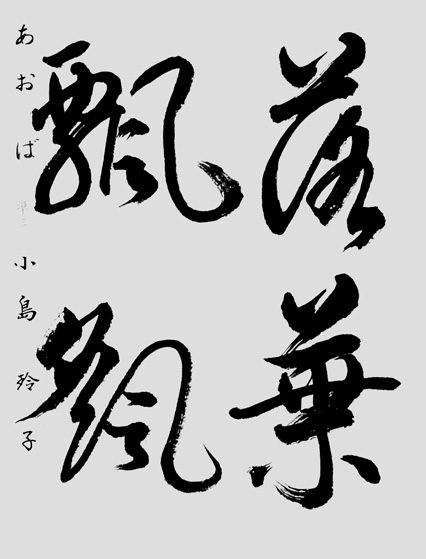 落葉
飄颻
あおば 小島玲子